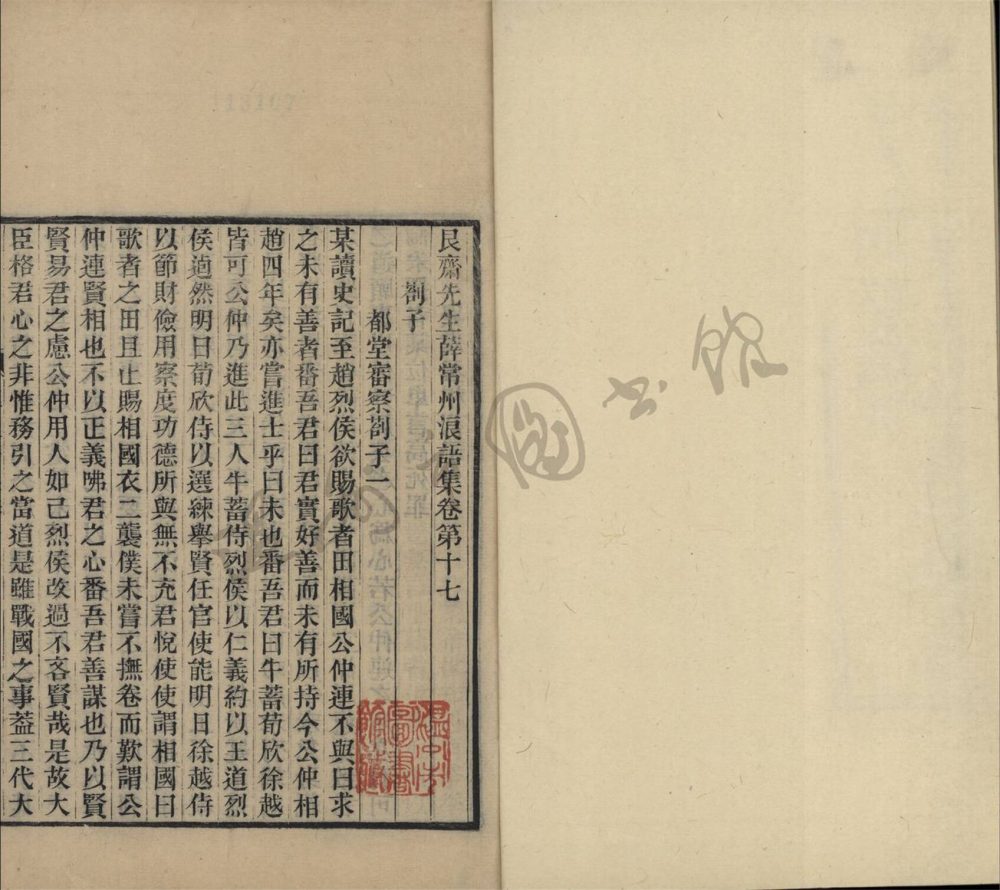 艮齋先生薛常州浪語集卷第十七
劄子
都堂審察劄子一
某讀史記至趙烈侯欲賜歌者田相國公仲連不與曰求
之未有善者番吾君曰君實好善而未有所持今公仲相
趙四年矣亦嘗進士乎曰未也番吾君曰牛蓄荀欣徐越
皆可公仲乃進此三人牛蓄侍烈侯以仁義約以王道烈
侯逌然明日荀欣侍以選練舉賢任官使能明日徐越侍
以節財儉用察度功德所與無不充君悅使使謂相國曰
歌者之田且止賜相國衣二襲僕未嘗不撫卷而歎謂公
仲連賢相也不以正義咈君之心番吾君善謀也乃以賢
賢易君之慮公仲用人如己烈侯改過不吝賢哉是故大
臣格君心之非惟務引之當道是雖戰國之事葢三代大
圖書館